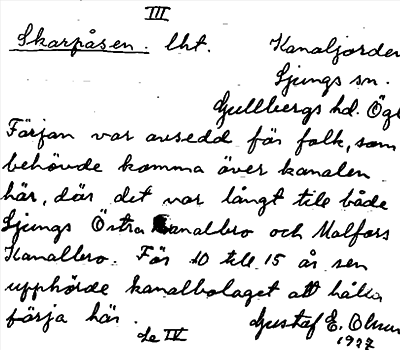 III
Skarpåsen. lht. Kanaljorden
Ljungs sn.
Gullbergs hd. Ögl
Färjan var avsedd för folk, som
behövde komma över kanalen
här, där det var långt till både
Ljungs Östra Kanalbro och Malfors
Kanalbro. För 10 till 15 år sen
upphörde kanalbolaget att hålla
färja här. Gustaf E. Olsson
Se IV 1927